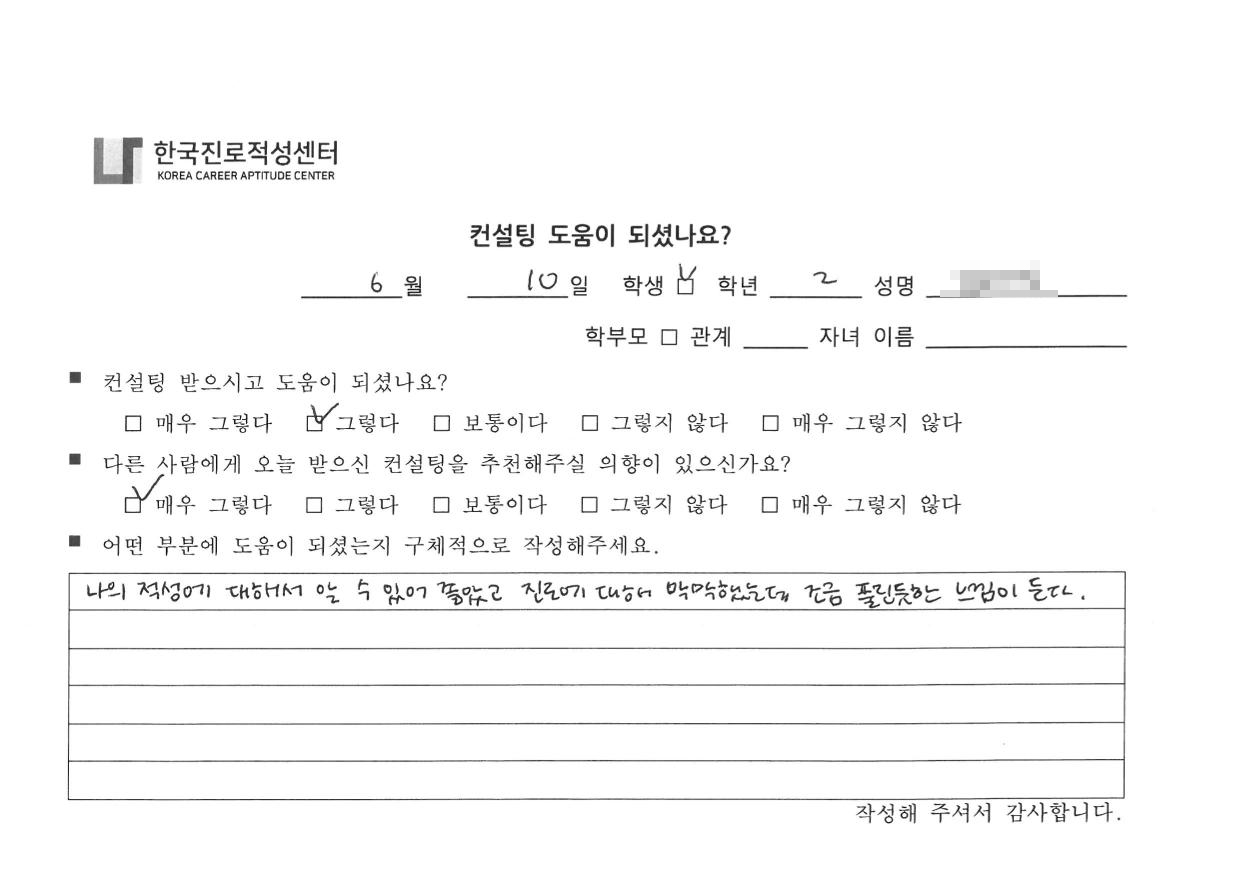 한국진로적성센터
KOREA CAREER APTITUDE CENTER
컨설팅 도움이 되셨나요?
6 월 10 일 학생 ☑ 학년 2 성명
학부모 □ 관계 자녀 이름
■ 컨설팅 받으시고 도움이 되셨나요?
□ 매우 그렇다 ☑ 그렇다 □ 보통이다 □ 그렇지 않다 □ 매우 그렇지 않다
■ 다른 사람에게 오늘 받으신 컨설팅을 추천해주실 의향이 있으신가요?
☑ 매우 그렇다 □ 그렇다 □ 보통이다 □ 그렇지 않다 □ 매우 그렇지 않다
■ 어떤 부분에 도움이 되셨는지 구체적으로 작성해주세요.
나의 적성에 대해서 알 수 있어 좋았고 진로에 대해서 막막했는데 조금 풀린듯한 느낌이 든다.
작성해 주셔서 감사합니다.